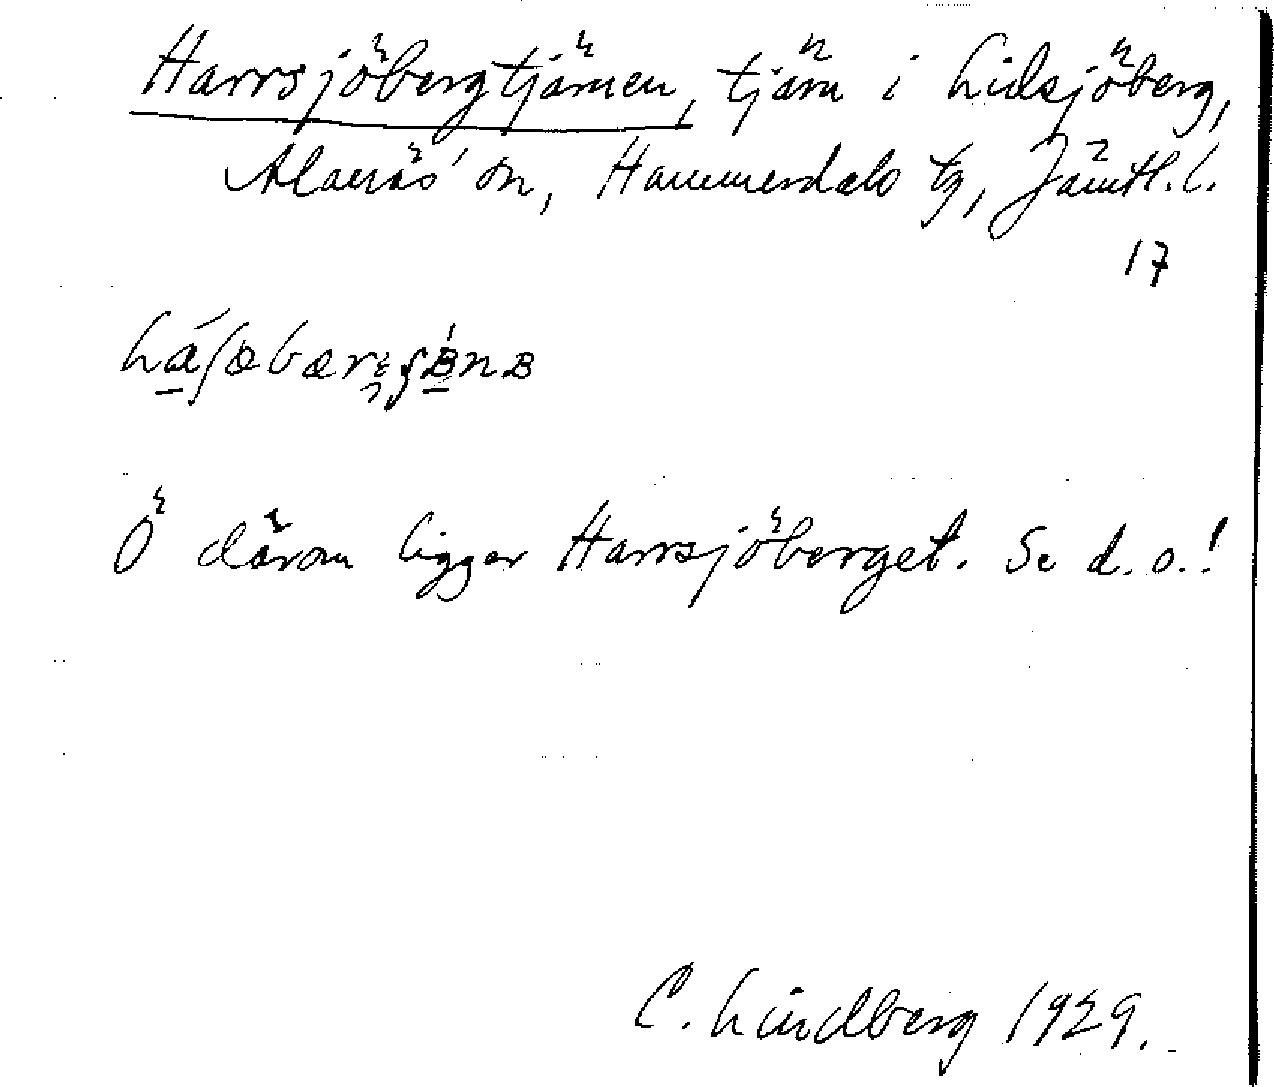 Harrsjöbergtjärnen, tjärn i Lidsjöberg,
Alanäs' sn, Hammerdals tg, Jämtl. l.
17
Ö därom ligger Harrsjöberget. Se d. o.!
C. Lindberg 1929.